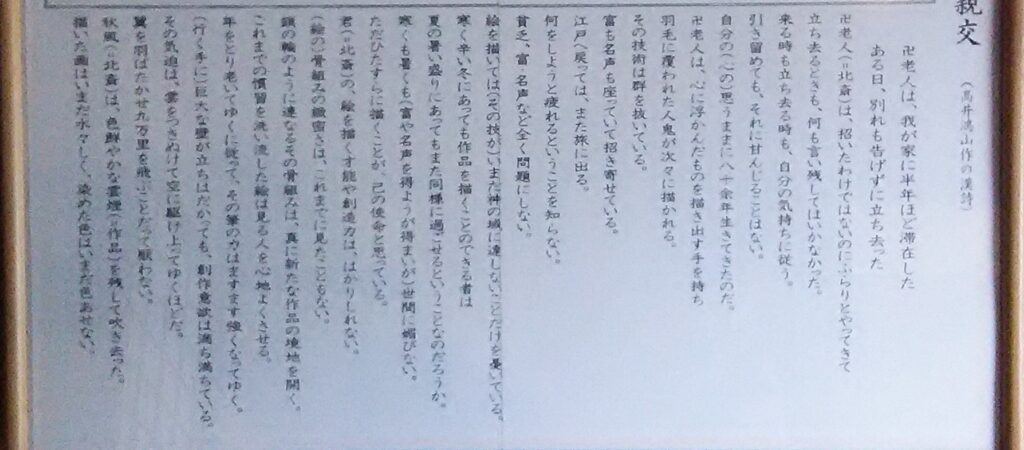 親交
（高井鴻山作の漢詩）
卍老人は、我が家に半年ほど滞在した
ある日、別れも告げずに立ち去った
卍老人(=北斎)は、招いたわけではないのにぶらりとやってきて
立ち去るときも、何も言い残してはいかなかった。
来る時も立ち去る時も、自分の気持ちに従う。
引き留めても、それに甘んじることはない。
自分の(心の)思うままに八十余年生きてきたのだ。
卍老人は、心に浮かんだものを描き出す手を持ち
羽毛に覆われた人鬼が次々に描かれる。
その技術は群を抜いている。
富も名声も座っていて招き寄せている。
江戸へ戻っては、また旅に出る。
何をしようと疲れるということを知らない。
貧乏、富、名声など全く問題にしない。
絵を描いては(その技が)いまだ神の域に達しないことだけを憂いている。
寒く辛い冬にあっても作品を描くことのできる者は
夏の暑い盛りにあってもまた同様に過ごせるということなのだろうか。
寒くも暑くも(富や名声を得ようが得まいが)世間に媚びない。
ただひたすらに描くことが、己の使命と思っている。
君(=北斎)の、絵を描く才能や創造力は、はかりしれない。
(絵の)骨組みの緻密さは、これまでに見たこともない。
鎖の輪のように連なるその骨組みは、真に新たな作品の境地を開く。
これまでの慣習を洗い流した絵は見る人を心地よくさせる。
年をとり老いてゆくに従って、その筆の力はますます強くなってゆく。
(行く手に)巨大な壁が立ちはだかっても、創作意欲は満ち満ちている。
その気迫は、雲をつきぬけて空に駆け上ってゆくほどだ。
翼を羽ばたかせ九万里を飛ぶことだって厭わない。
秋風(=北斎)は、色鮮やかな雲煙(=作品)を残して吹き去った。
描いた画はいまだ水々しく、染めた色はいまだ色あせない。